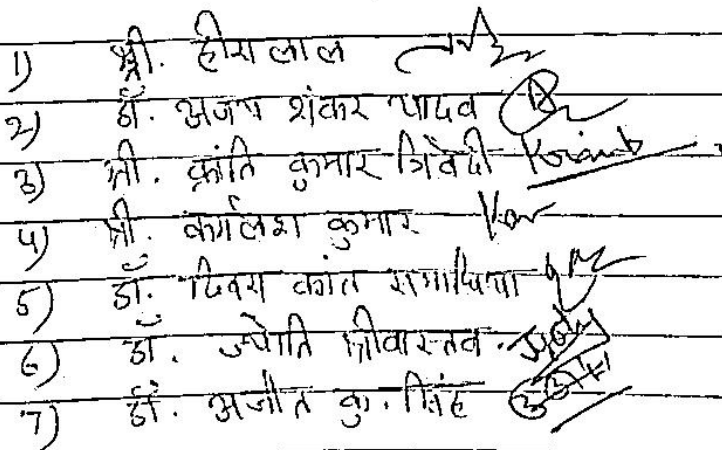 1) श्री. हीरा लाल
2) डॉ. अजय शंकर यादव
3) श्री. क्रांति कुमार त्रिवेदी
4) श्री. कमलेश कुमार
5) डॉ. कांत
6) डॉ. ज्योति श्रीवास्तव
7) डॉ. अजीत कु. सिंह